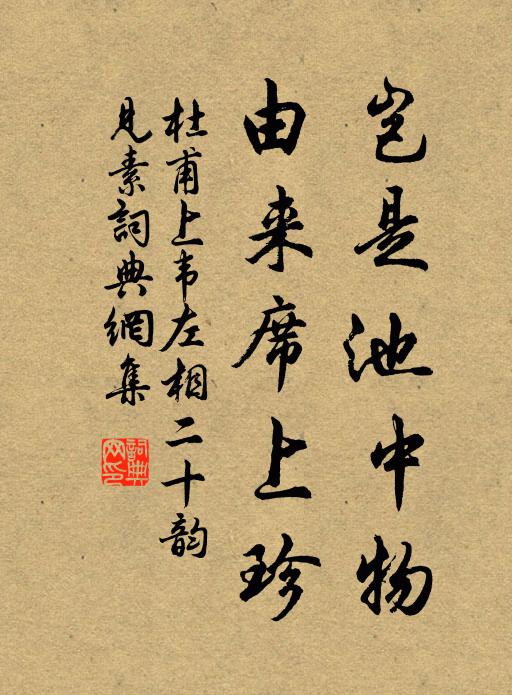 岂是池中物
由来席上珍
杜甫上韦左相二十韵
见素詞典網集
詞典
网印